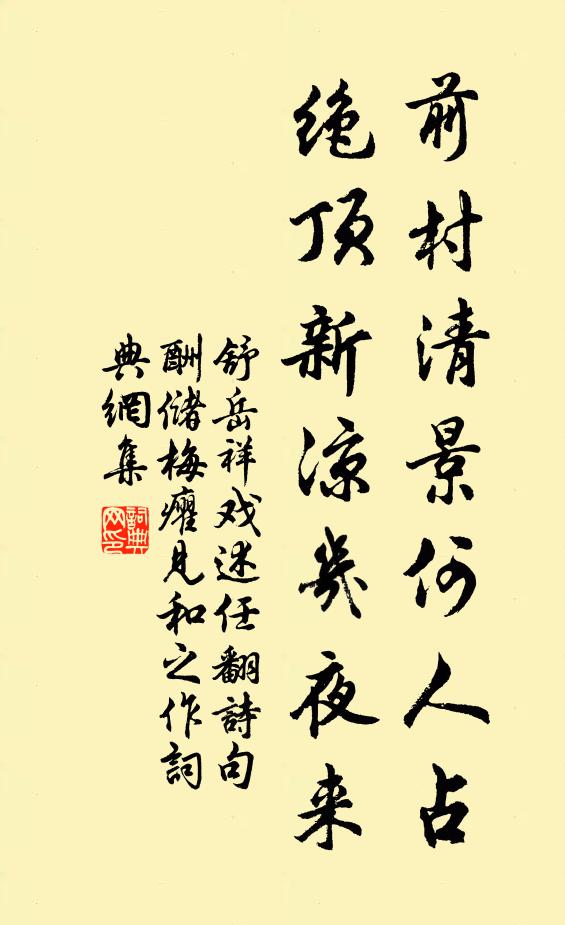 前村清景何人占
绝顶新凉幾夜来
舒岳祥戏述任翻詩句
酬儲梅癯見和之作詞
典網集
詞典网印